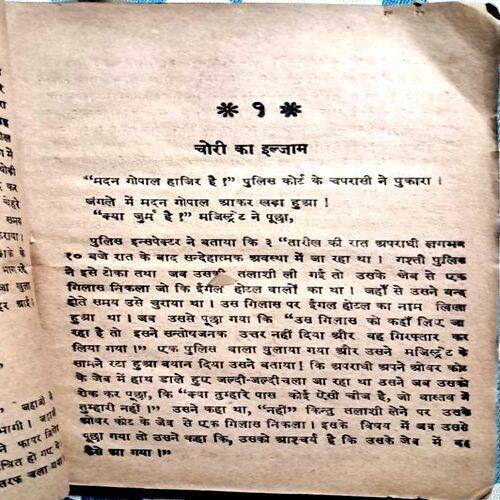 * १ *
चोरी का इल्जाम
“मदन गोपाल हाजिर है !” पुलिस कोर्ट के चपरासी ने पुकारा ।
जंगले में मदन गोपाल आकर खड़ा हुआ !
“क्या जुर्म है !” मजिस्ट्रेट ने पूछा,
पुलिस इन्सपेक्टर ने बताया कि ३ “तारील की रात अपराधी लगभग
१० बजे रात के बाद सन्देहात्मक अवस्था में जा रहा था । गश्ती पुलिस
ने इसे टोका तथा जब उसकी तलाशी ली गई तो उसके जेब से एक
गिलास निकला जो कि ईगल होटल वालों का था । जहाँ से उसने बन्द
होते समय उसे चुराया था । उस गिलास पर ईगल होटल का नाम लिखा
हुआ था । जब उससे पूछा गया कि “उस गिलास को कहाँ लिए जा
रहा है तो इसने सन्तोषजनक उत्तर नहीं दिया और यह गिरफ्तार कर
लिया गया ।” एक पुलिस वाला बुलाया गया और उसने मजिस्ट्रेट के
सामने रटा हुआ बयान दिया उसने बताया ! कि अपराधी अपने ओवर कोट
के जेब में हाथ डाले हुए जल्दी-जल्दीचला जा रहा था उसने जब उसको
रोक कर पूछा, कि “क्या तुम्हारे पास कोई ऐसी चीज है, जो वास्तव में
तुम्हारी नहीं ।” उसने कहा था, “नहीं” किन्तु तलाशी लेने पर उसके
ओवर कोट के जेब से एक गिलास निकला । इसके विषय में जब उससे
पूछा गया तो उसने कहा कि, उसको आश्चर्य है कि उसके जेब में वह
कैसे आ गया ।”